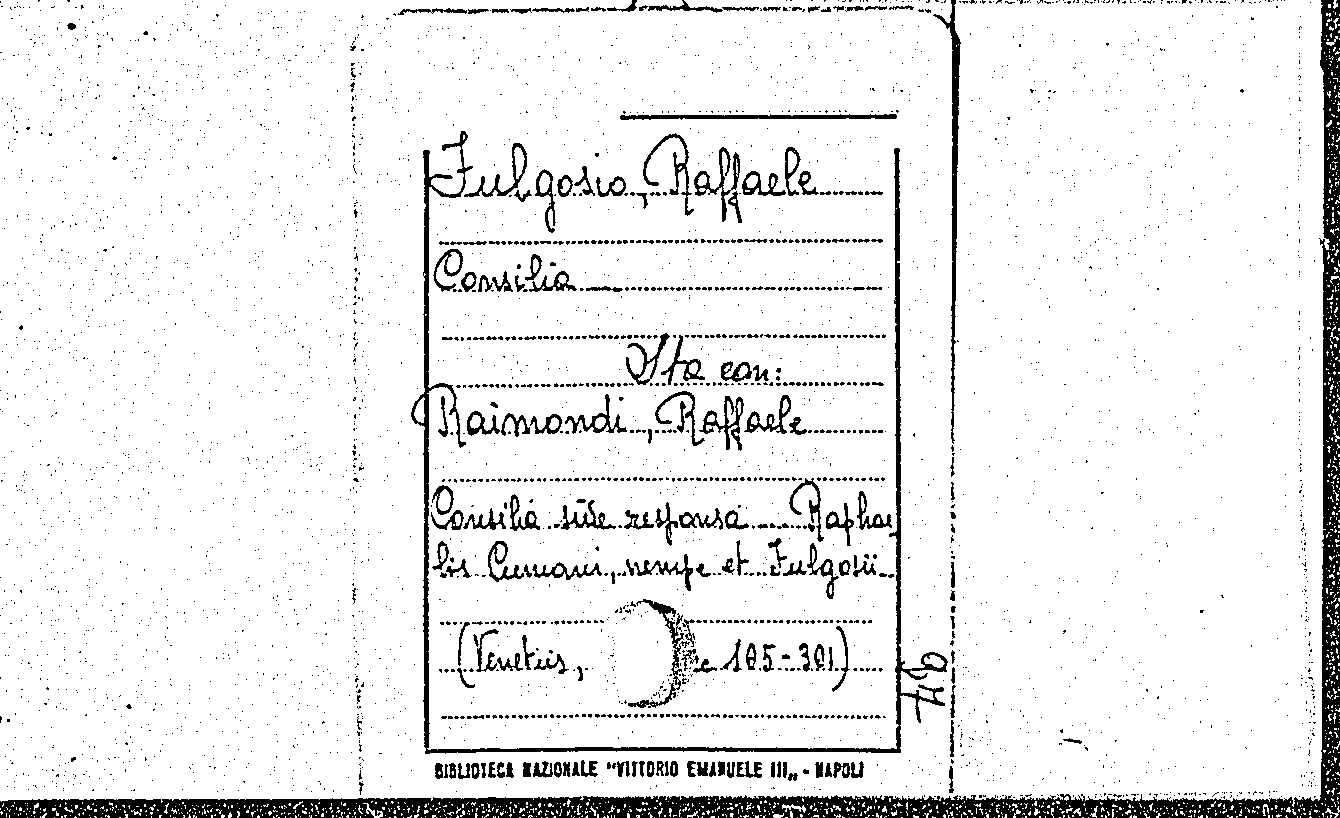 Fulgosio, Raffaele
Consilia
Sta con:
Raimondi, Raffaele
Consilia sive responsa Raphae
lis Cumani, nempe et Fulgosii
(Venetiis, c 105-301)
BIBLIOTECA NAZIONALE "VITTORIO EMANUELE III„ - NAPOLI